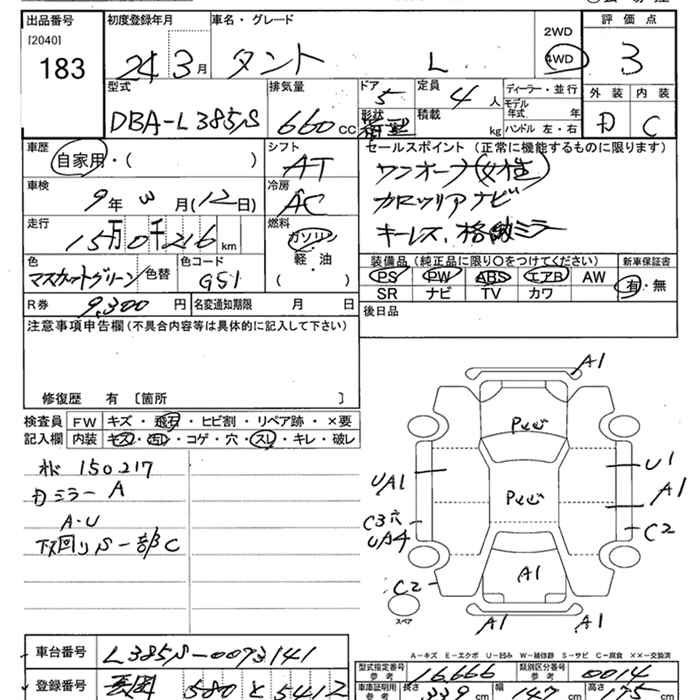 出品番号
[2040]
183
初度登録年月
24 3月
車名・グレード
タント L
2WD
4WD
評価点
3
外装 内装
D C
型式
DBA-L385S
排気量
660cc
ドア
5
形状
定員
4人
積載
kg
ディーラー・並行
モデル年式 年
ハンドル 左・右
車歴
自家用・( )
シフト
AT
セールスポイント (正常に機能するものに限ります)
ワンオーナー(女性)
カロッツリア ナビ
キーレス、格納ミラー
車検
9年 3月(12日)
冷房
AC
走行
15万0千216km
燃料
ガソリン
軽・油
( )
色
マスカットグリーン
色替
色コード
G51
装備品 (純正品に限り○をつけてください)
PS PW ABS エアB AW
SR ナビ TV カワ
新車保証書
有・無
R券
9,300円
名変通知期限 月 日
後日品
注意事項申告欄 (不具合内容等は具体的に記入して下さい)
修復歴 有 [箇所 ]
検査員記入欄
FW キズ・飛石・ヒビ割・リペア跡・×要
内装 キズ・汚レ・コゲ・穴・スレ・キレ・破レ
150217
ミラー A
A・U
下回りS 一部C
A1
UA1
U1
A1
C3穴
UA4
C2
C2
A1
A1
A1
スペア
A-キズ E-エクボ U-凹み W-補修跡 S-サビ C-腐食 XX-交換済
車台番号
L385S-0073141
登録番号
580 と 5412
型式指定番号 参考
16666
類別区分番号 参考
0014
車庫証明用 参考
長さ 339cm
幅 147cm
高さ 175cm